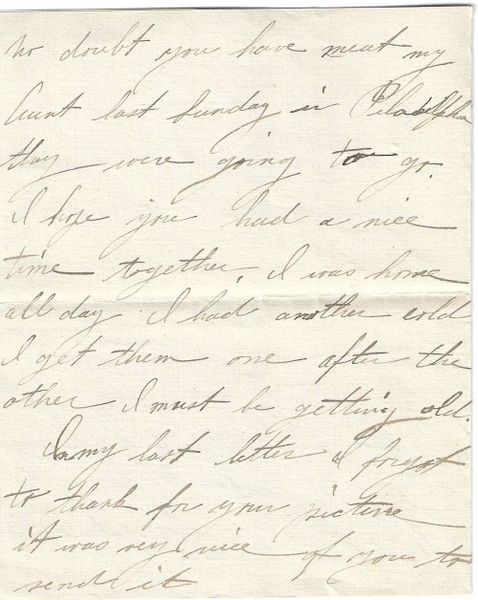 No doubt you have meat my
Aunt last Sunday in Piladelphia
thay were going to go.
I hope you had a nice
time together. I was home
all day I had another cold
I get them one after the
other I must be getting old.
In my last letter I forgot
to thank for your picture
it was very nice of you to
send it